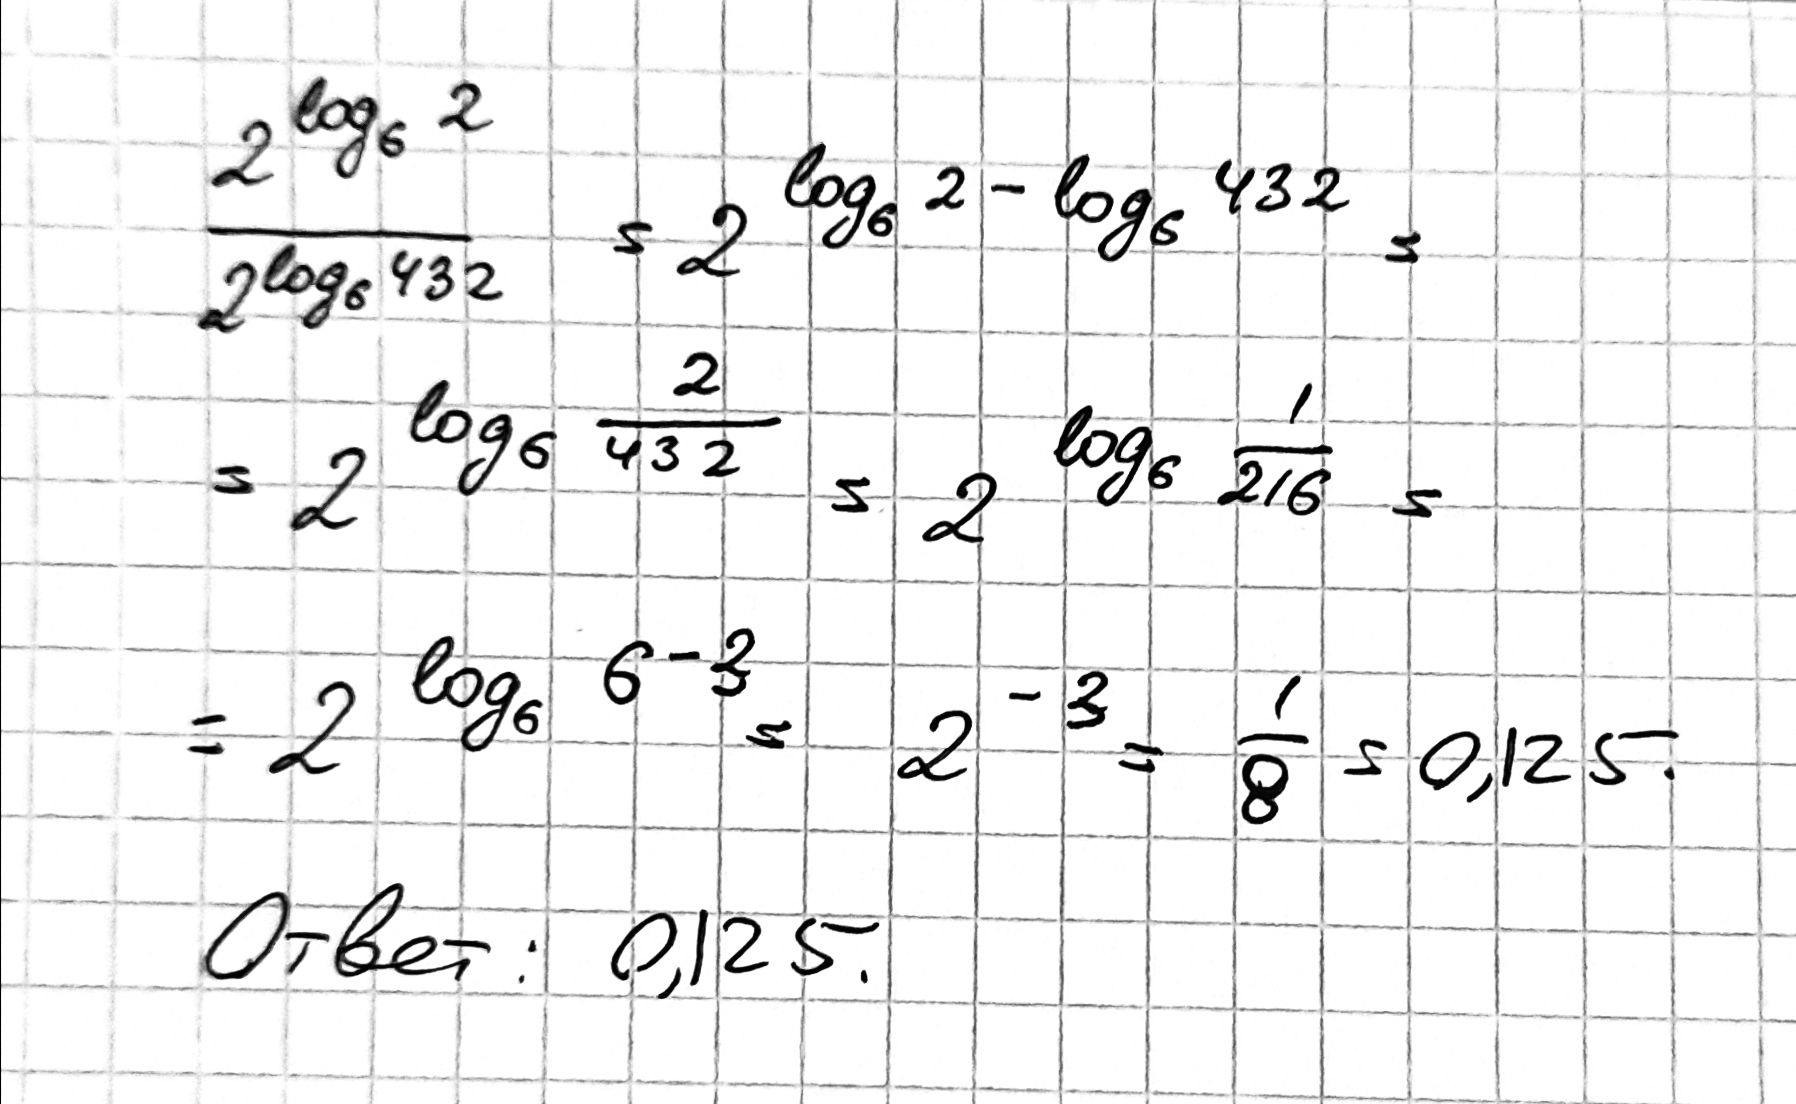 2^{log₆ 2} / 2^{log₆ 432} = 2^{log₆ 2 - log₆ 432} =
= 2^{log₆ 2/432} = 2^{log₆ 1/216} =
= 2^{log₆ 6^{-3}} = 2^{-3} = 1/8 = 0,125.
Ответ: 0,125.